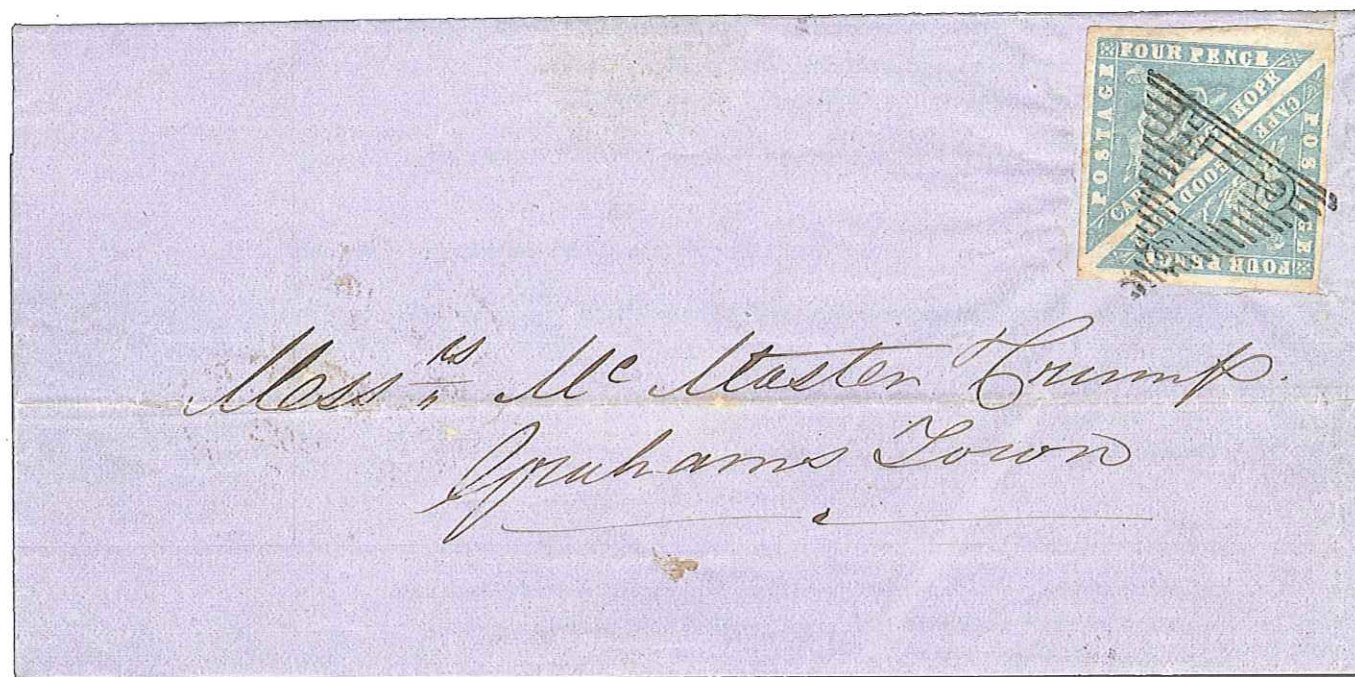 FOUR PENCE
POSTAGE
CAPE OF GOOD HOPE
CAPE OF GOOD HOPE
POSTAGE
FOUR PENCE
Mess.rs Mc Master Trump.
Grahams Town